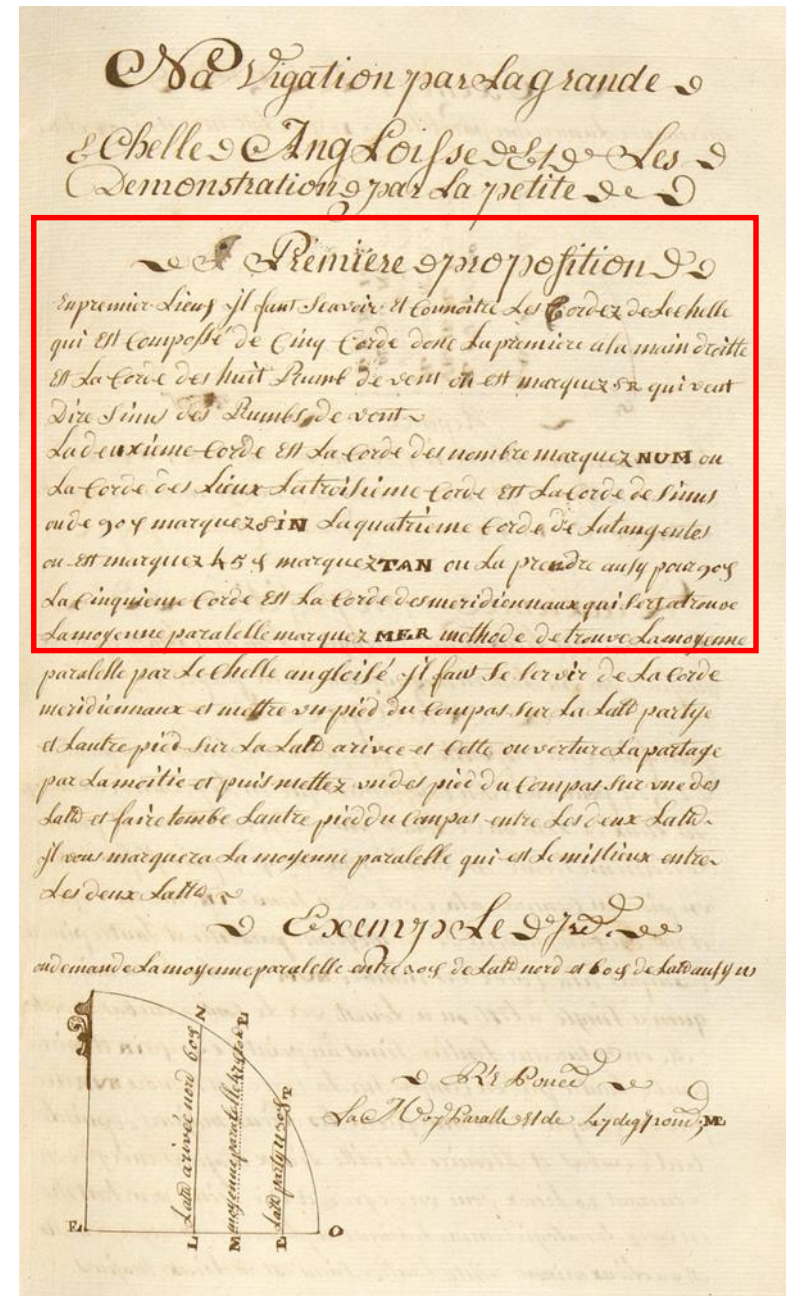 Navigation par La grande
Echelle Angloisse Et Les
Demonstration par La petite
Premiere proposition
En premier Lieux Jl faut Scavoir Et Connoitre Les Cordez de Lechelle
qui Est Composse de Cinq Corde donc La premiere a la main droitte
Est La Corde des huit Rumb de vent ou est marquez SR qui veut
Dire Sinus des Rumbs de vent
La deuxieme Corde Est La Corde des nombre marquez NUM ou
La Corde des Lieux La troisieme Corde Est La Corde de Sinus
ou de 90 marquez SIN La quatrieme Corde de La tangentes
ou Est marquez 45 marquez TAN ou La prendre ausy pour 90
La Cinquieme Corde Est La Corde des meridiennaux qui Sert a trouve
La moyenne paralelle marquez MER methode de trouve La moyenne
paralelle par Lechelle angloisé Jl faut Se Servir de La Corde
meridiennaux et mettre un pied du Compas Sur La Latd partye
et Lautre pied Sur La Latd arivee et Cette ouverture La partage
par La moitie et puis mettez un des pied du Compas Sur une des
Latd et faire tombe Lautre pied du Compas entre Les deux Latd
Jl vous marquera La moyenne paralelle qui est Le millieux entre
Les deux Latd
Exemple
on demande La moyenne paralelle entre 20 de Latd nord et 60 de Latd ausy N
N
L
P
Latd arivée nord 60
moyenne paralelle
Latd party N 20
Réponce
La Moy Paralle Est de
E
L
M
L
O